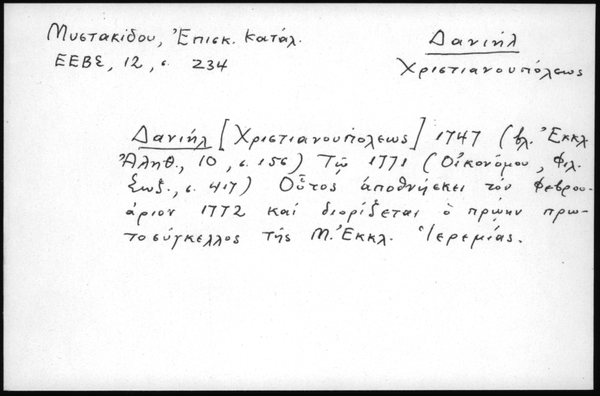 Μυστακίδου, Ἐπισκ. Κατάλ.
ΕΕΒΣ, 12, σ. 234
Δανιήλ
Χριστιανουπόλεως
Δανιήλ [Χριστιανουπόλεως] 1747 (βλ. Ἐκκλ
Ἀληθ., 10, σ. 156) Τῷ 1771 (Οἰκονόμου, Φιλ.
Σωζ., σ. 417) Οὗτος ἀποθνήσκει τὸν Φεβρου-
άριον 1772 καὶ διορίζεται ὁ πρώην πρω-
τοσύγκελλος τῆς Μ. Ἐκκλ. Ἱερεμίας.